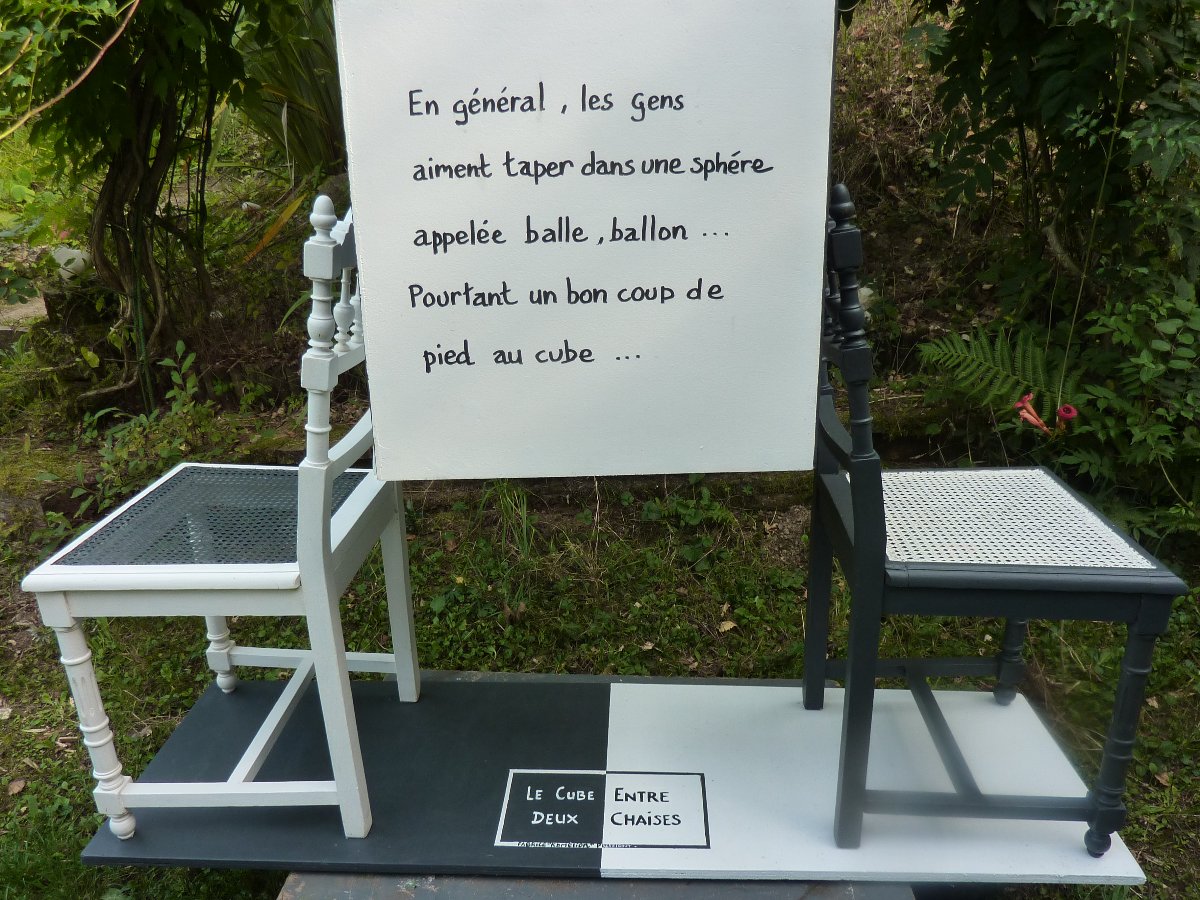 En général, les gens
aiment taper dans une sphére
appelée balle, ballon ...
Pourtant un bon coup de
pied au cube ...
LE CUBE ENTRE
DEUX CHAISES